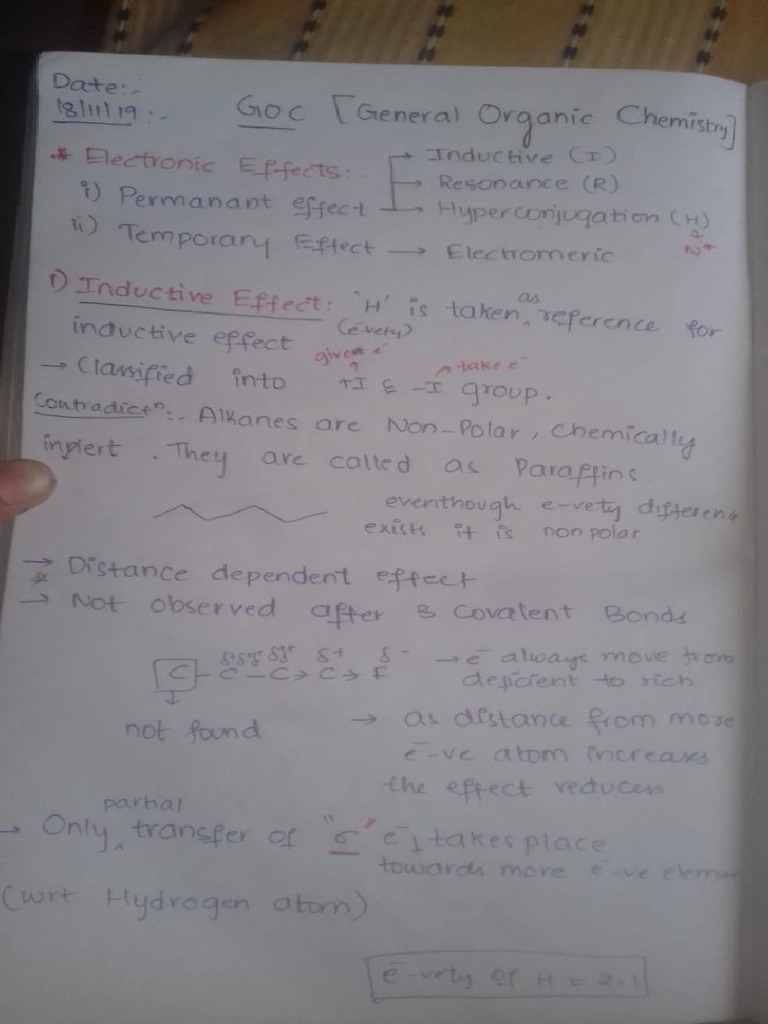 Date:-
18/11/19:-
GOC [General Organic Chemistry]
* Electronic Effects:-
→ Inductive (I)
→ Resonance (R)
i) Permanant effect → Hyperconjugation (H)
ii) Temporary Effect → Electromeric
1) Inductive Effect: 'H' is taken as reference for
inductive effect (e⁻vety)
given e⁻ take e⁻
→ Classified into +I & -I group.
Contradictⁿ:- Alkanes are Non-Polar, Chemically
inert. They are called as Paraffins
eventhough e-vety differen
exists it is non polar
→ Distance dependent effect
→ Not observed after 3 Covalent Bonds
δ+ δ-
C - C - C → C → F → e⁻ always move from
deficient to rich
not found → as distance from more
e⁻-ve atom increases
the effect reduces
→ Only partial transfer of "σ" e⁻s takes place
towards more e⁻-ve elem
(wrt Hydrogen atom)
e⁻-vety of H = 2.1